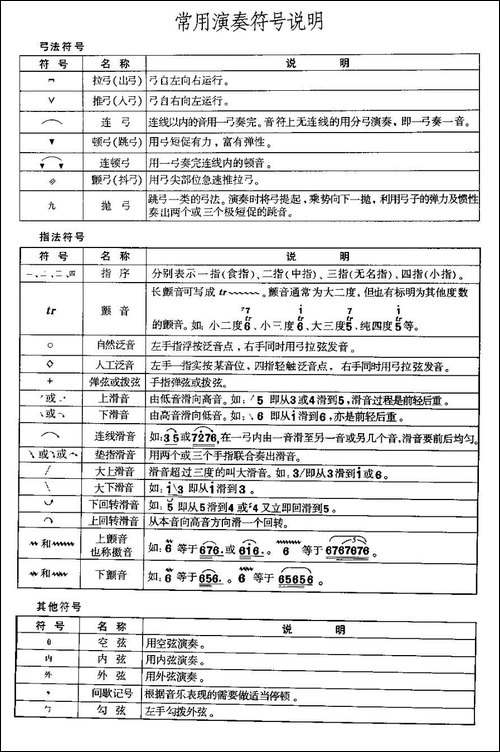 常用演奏符号说明
弓法符号
符号 名称 说明
拉弓(出弓) 弓自左向右运行。
∨ 推弓(入弓) 弓自右向左运行。
连弓 连线以内的音用一弓奏完。音符上无连线的用分弓演奏，即一弓奏一音。
▼ 顿弓(跳弓) 用弓短促有力，富有弹性。
连顿弓 用一弓奏完连线内的顿音。
颤弓(抖弓) 用弓尖部位急速推拉弓。
九 抛弓 跳弓一类的弓法。演奏时将弓提起，乘势向下一抛，利用弓子的弹力及惯性
奏出两个或三个极短促的跳音。
指法符号
一、二、三、四 指序 分别表示一指(食指)、二指(中指)、三指(无名指)、四指(小指)。
tr 颤音 长颤音可写成 tr~~~~~~。颤音通常为大二度，但也有标明为其他度数
的颤音。如：小二度6、小三度6、大三度5、纯四度5等。
○ 自然泛音 左手指浮按泛音点，右手同时用弓拉弦发音。
◇ 人工泛音 左手一指实按某音位，四指轻触泛音点，右手同时用弓拉弦发音。
+ 弹弦或拨弦 手指弹弦或拨弦。
或 上滑音 由低音滑向高音。如：5 即从3或4滑到5，滑音过程是前轻后重。
或 下滑音 由高音滑向低音。如：6 即从i滑到6，亦是前轻后重。
连线滑音 如：3 5或7276，在一弓内由一音滑至另一音或另几个音，滑音要前后均匀。
或 或 垫指滑音 用两个或三个手指联合奏出滑音。
大上滑音 滑音超过三度的叫大滑音。如，3/即从3滑到i或6。
大下滑音 如：i\3 即从i滑到3。
下回转滑音 如：5 即从5滑到4 或4又立即回滑到5。
上回转滑音 从本音向高音方向滑一个回转。
和 上颤音
也称徵音 如：6 等于676·或6i6·。6 等于6767676。
和 下颤音 如：6 等于656·。6 等于65656。
其他符号
符号 名称 说明
空弦 用空弦演奏。
内 内弦 用内弦演奏。
外 外弦 用外弦演奏。
间歇记号 根据音乐表现的需要做适当停顿。
勾弦 左手勾拨外弦。